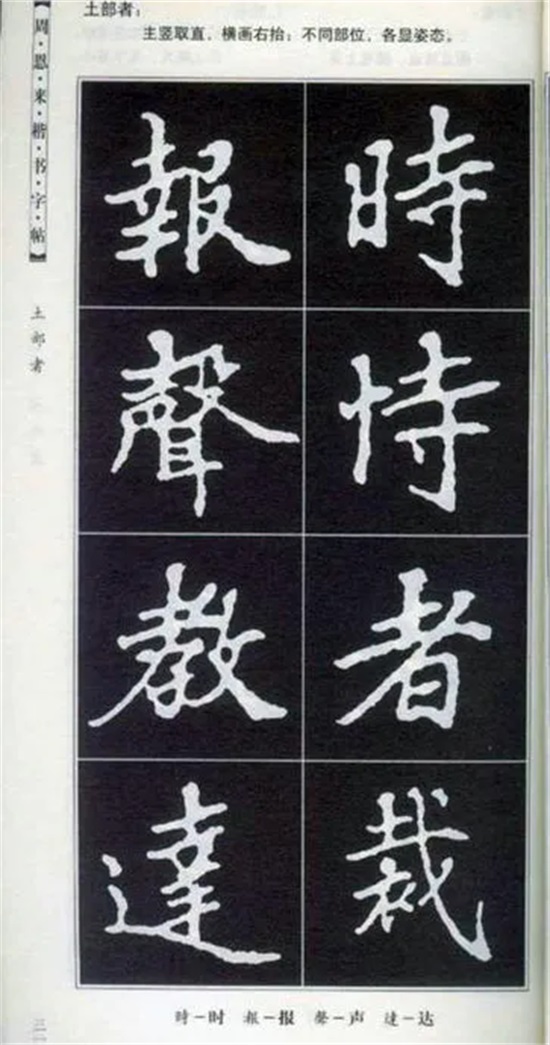 土部者：
主竖取直，横画右抬；不同部位，各显姿态。
時恃者裁
報聲教達
【周·恩·来·楷·书·字·帖】
土部者
時－时 報－报 聲－声 達－达